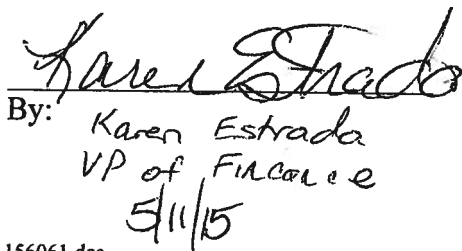 Karen Estrada
By:
Karen Estrada
VP of Finance
5/11/15
156061.doc